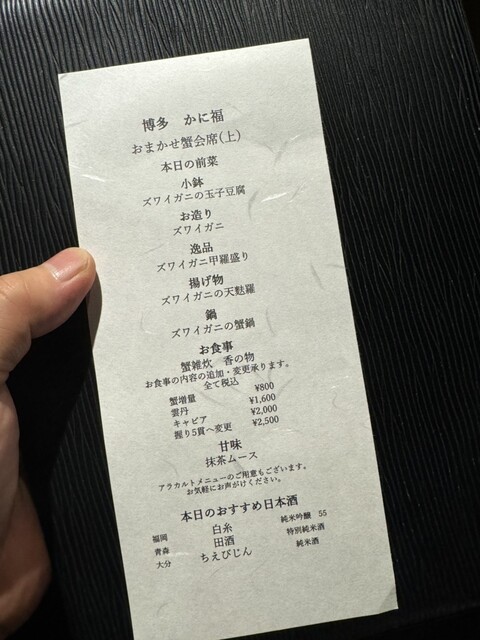 博多　かに福
おまかせ蟹会席(上)
本日の前菜
小鉢
ズワイガニの玉子豆腐
お造り
ズワイガニ
逸品
ズワイガニ甲羅盛り
揚げ物
ズワイガニの天麩羅
鍋
ズワイガニの蟹鍋
お食事
蟹雑炊　香の物
お食事の内容の追加・変更承ります。
全て税込
蟹増量 ¥800
雲丹 ¥1,600
キャビア ¥2,000
握り5貫へ変更 ¥2,500
甘味
抹茶ムース
アラカルトメニューのご用意もございます。
お気軽にお声がけください。
本日のおすすめ日本酒
福岡 白糸 純米吟醸 55
青森 田酒 特別純米酒
大分 ちえびじん 純米酒